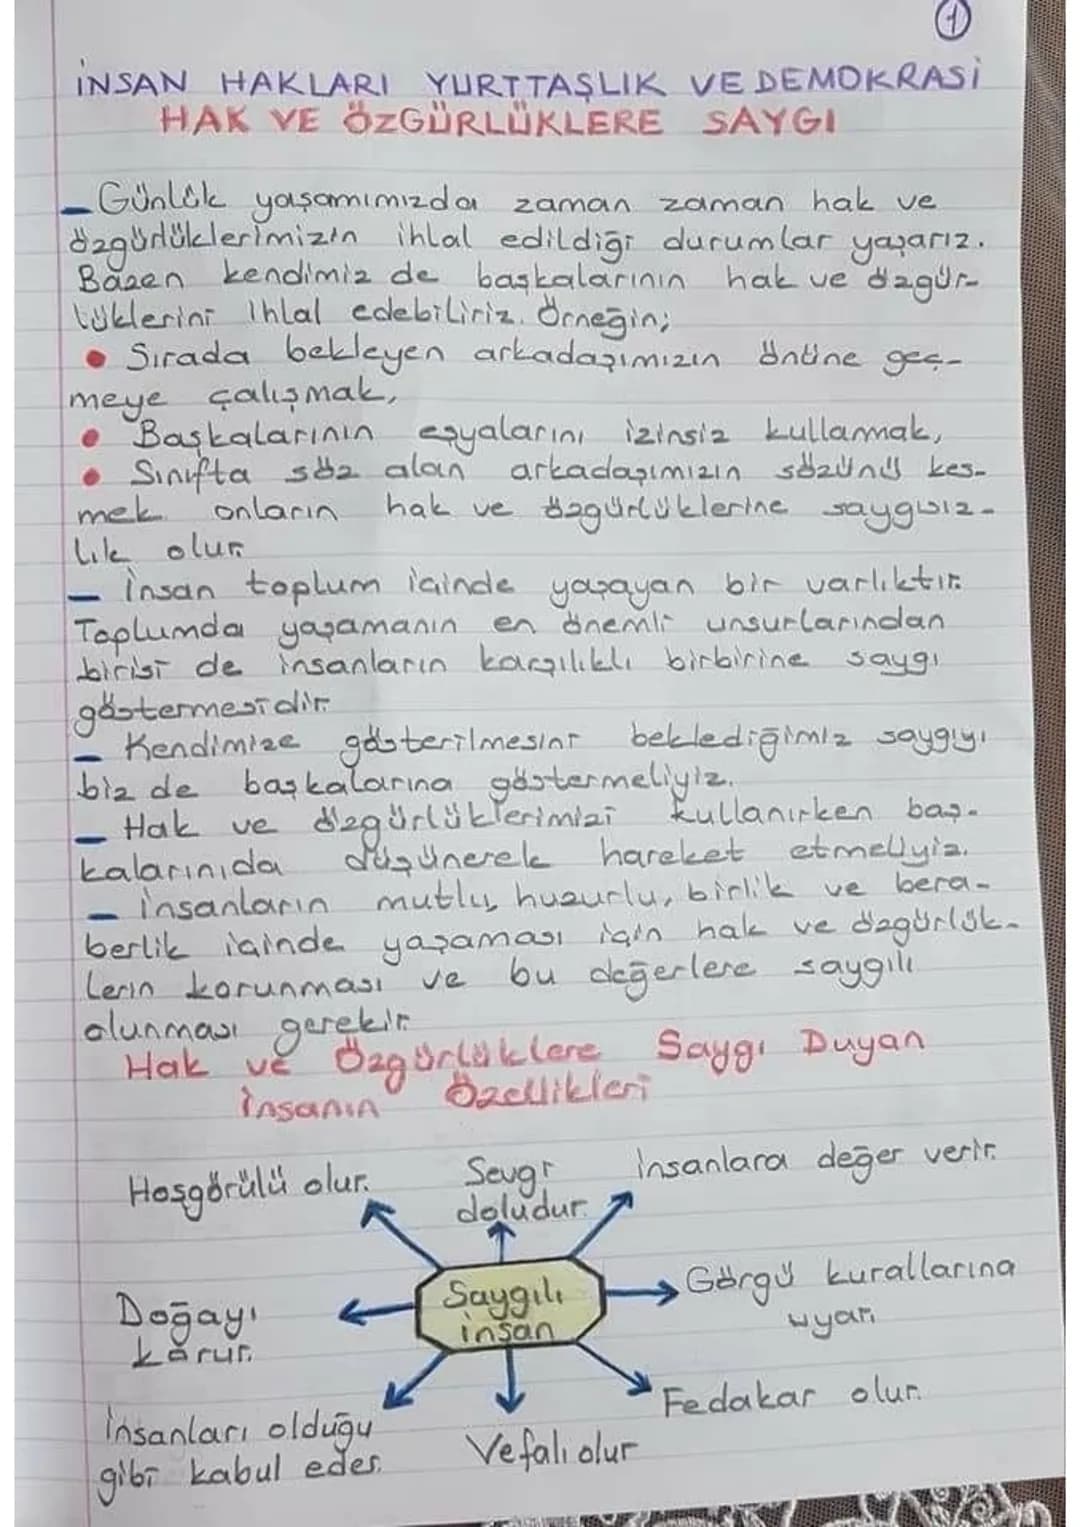 1
İNSAN HAKLARI YURTTAŞLIK VE DEMOKRASİ
HAK VE ÖZGÜRLÜKLERE SAYGI
– Günlük yaşamımızda zaman zaman hak ve
özgürlüklerimizin ihlal edildiği durumlar yaşarız.
Bazen kendimiz de başkalarının hak ve özgür-
lüklerini ihlal edebiliriz. Örneğin;
• Sırada bekleyen arkadaşımızın önüne geç-
meye çalışmak,
• Başkalarının eşyalarını izinsiz kullanmak,
• Sınıfta söz alan arkadaşımızın sözünü kes-
mek onların hak ve özgürlüklerine saygısız-
lık olur.
– İnsan toplum içinde yaşayan bir varlıktır.
Toplumda yaşamanın en önemli unsurlarından
birisi de insanların karşılıklı birbirine saygı
göstermesidir.
– Kendimize gösterilmesini beklediğimiz saygıyı
biz de başkalarına göstermeliyiz.
– Hak ve özgürlüklerimizi kullanırken baş-
kalarınıda düşünerek hareket etmeliyiz.
– İnsanların mutlu, huzurlu, birlik ve bera-
berlik içinde yaşaması için hak ve özgürlük-
lerin korunması ve bu değerlere saygılı
olunması gerekir.
Hak ve Özgürlüklere Saygı Duyan
İnsanın Özellikleri
Hoşgörülü olur.
Sevgi
doludur.
İnsanlara değer verir.
Saygılı
insan
Görgü kurallarına
uyar.
Doğayı
korur.
Fedakar olur.
İnsanları olduğu
gibi kabul eder.
Vefalı olur